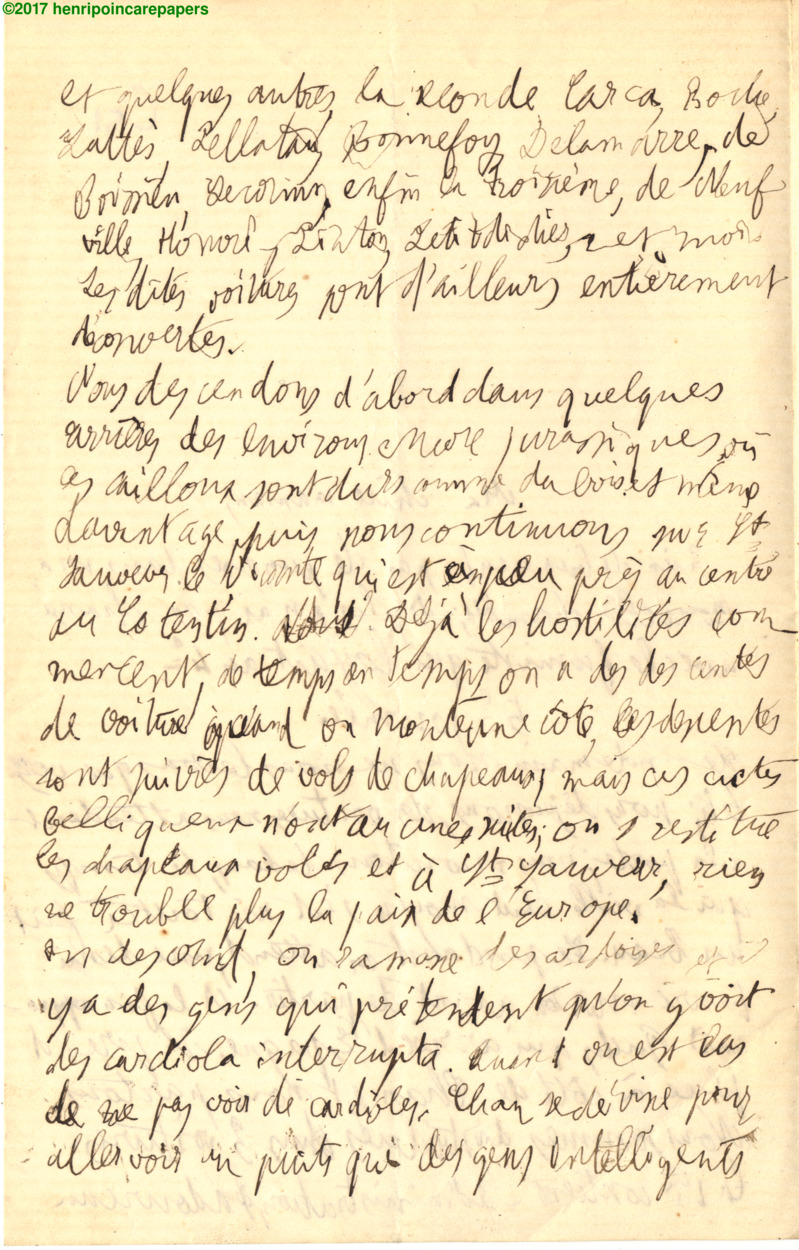 ©2017 henripoincarepapers
et quelques autres, la seconde Carca, Roche,
Lattès, Pellatan, Bonnefoy, Delamarre, de
Boismen, enfin la troisième, de Neuf
ville, Honoré, Petitdidier, et moi.
Lesdites voitures sont d'ailleurs entièrement
découvertes.
Nous descendons d'abord dans quelques
carrières des environs encore jurassiques, où
ces cailloux sont durs comme du bois et même
davantage, puis nous continuons sur St
Sauveur le Vicomte qui est à peu près au centre
du Cotentin. Déjà les hostilités com
mencent, de temps en temps on a des descentes
de voiture quand on monte une côte, les descentes
sont suivies de vols de chapeaux; mais ces actes
belliqueux n'ont aucunes suites; on se restitue
les chapeaux volés et à St Sauveur, rien
ne trouble plus la paix de l'Europe.
On descend, on ramasse des ardoises et il
y a des gens qui prétendent qu'on y voit
des cardiola interrupta. Quand on est las
de ne pas voir de cardioles, on se dévine pour
aller voir un puits que des gens intelligents